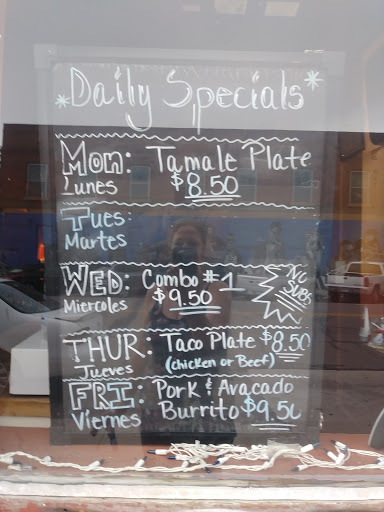 *Daily Specials*
Mon: Tamale Plate
Lunes $8.50
Tues:
Martes
WED: Combo #1
Miercoles $9.50
No
Subs
THUR: Taco Plate $8.50
Jueves (chicken or Beef)
FRI: Pork & Avacado
Viernes Burrito $9.50